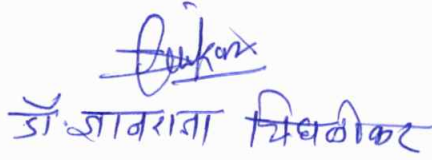 डॉ. ज्ञानराजा चिघळीकर